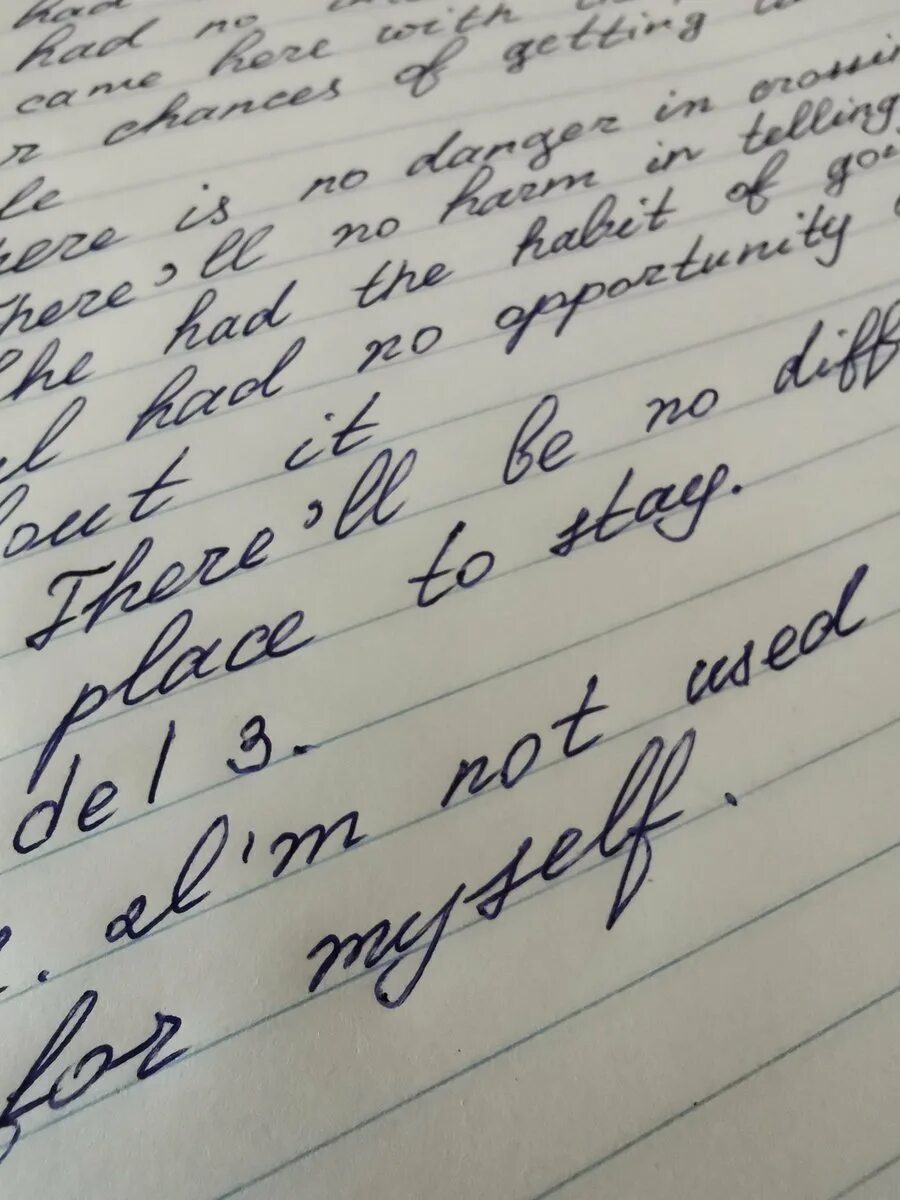 had no
had no
came here with
r chances of getting
le
here is no danger in crossin
There'll no harm in telling
he had the habit of goi
I had no opportunity
bout it
There'll be no diff
place to stay.
del 3.
. I'm not used
for myself.